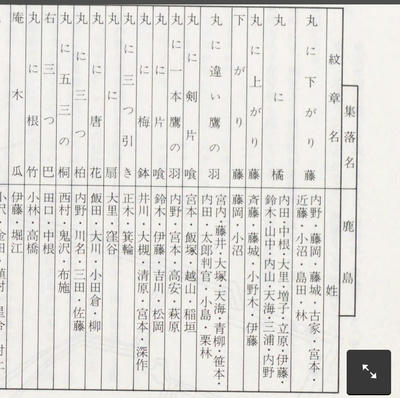 集落名
鹿島
紋章名
姓
丸に下がり藤
内野・藤岡・藤城・古家・宮本・
近藤・小沼・島田・林
丸に橘
内田・中根・大里・増子・立原・伊藤・
鈴木・山中・内山・天海・三浦・内野
丸に上がり藤
斎藤・藤城・小野木・伊藤
下がり藤
藤岡・小沼
丸に違い鷹の羽
宮内・藤井・大塚・天海・青柳・笹本・
内田・太郎判官・小島・栗林
丸に剣片喰
宮本・飯塚・越山・稲垣
丸に一本鷹の羽
内野・宮本・高安・萩原
丸に片喰
鈴木・伊藤・吉川・松岡
丸に梅鉢
井川・大槻・清原・宮本・深作
丸に三つ引き
正木・箕輪
丸に扇
大里・窪谷
丸に唐花
飯田・大川・小田倉・柳
丸に三つ柏
内野・川名・三田・佐藤
丸に五三の桐
西村・鬼沢・布施
右三つ巴
田口・中根
丸に根竹
小林・高橋
庵木瓜
伊藤・堀江